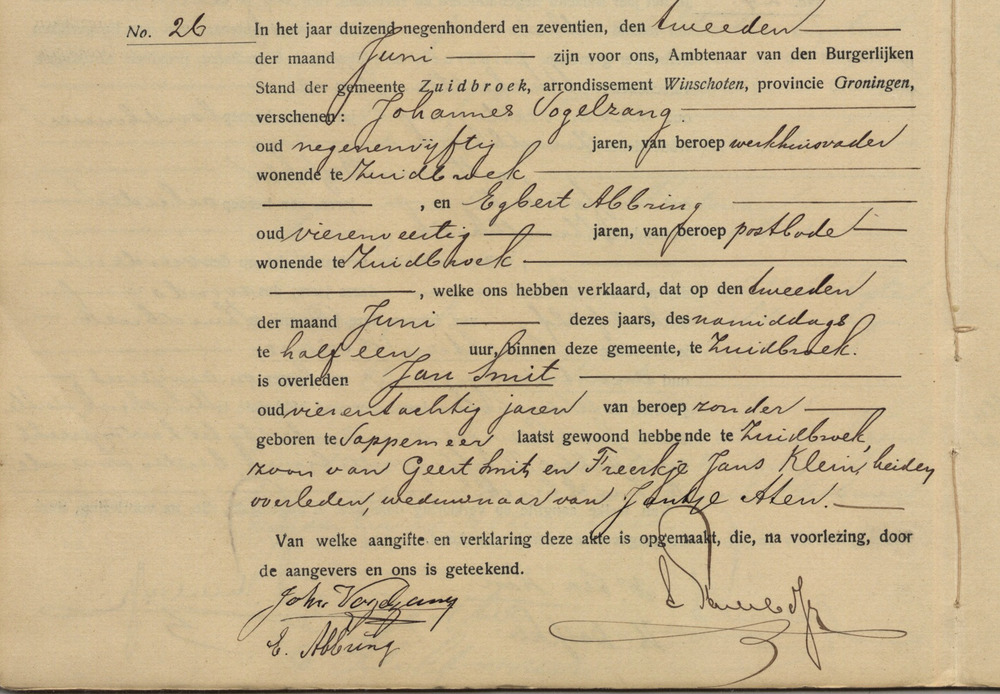 No. 26 In het jaar duizend negenhonderd en zeventien, den tweeden
der maand Juni zijn voor ons, Ambtenaar van den Burgerlijken
Stand der gemeente Zuidbroek, arrondissement Winschoten, provincie Groningen,
verschenen: Johannes Vogelzang
oud negenenvijftig jaren, van beroep werkhuisvader
wonende te Zuidbroek
, en Egbert Abbring
oud vierenveertig jaren, van beroep postbode
wonende te Zuidbroek
, welke ons hebben verklaard, dat op den tweeden
der maand Juni dezes jaars, des namiddags
te half een uur, binnen deze gemeente, te Zuidbroek.
is overleden Jan Smit
oud vierentachtig jaren van beroep zonder
geboren te Sappemeer laatst gewoond hebbende te Zuidbroek,
zoon van Geert Smit en Freerkje Jans Klein, beiden
overleden, weduwnaar van Aten.
Van welke aangifte en verklaring deze akte is opgemaakt, die, na voorlezing, door
de aangevers en ons is geteekend.
Joh. Vogelzang
E. Abbring